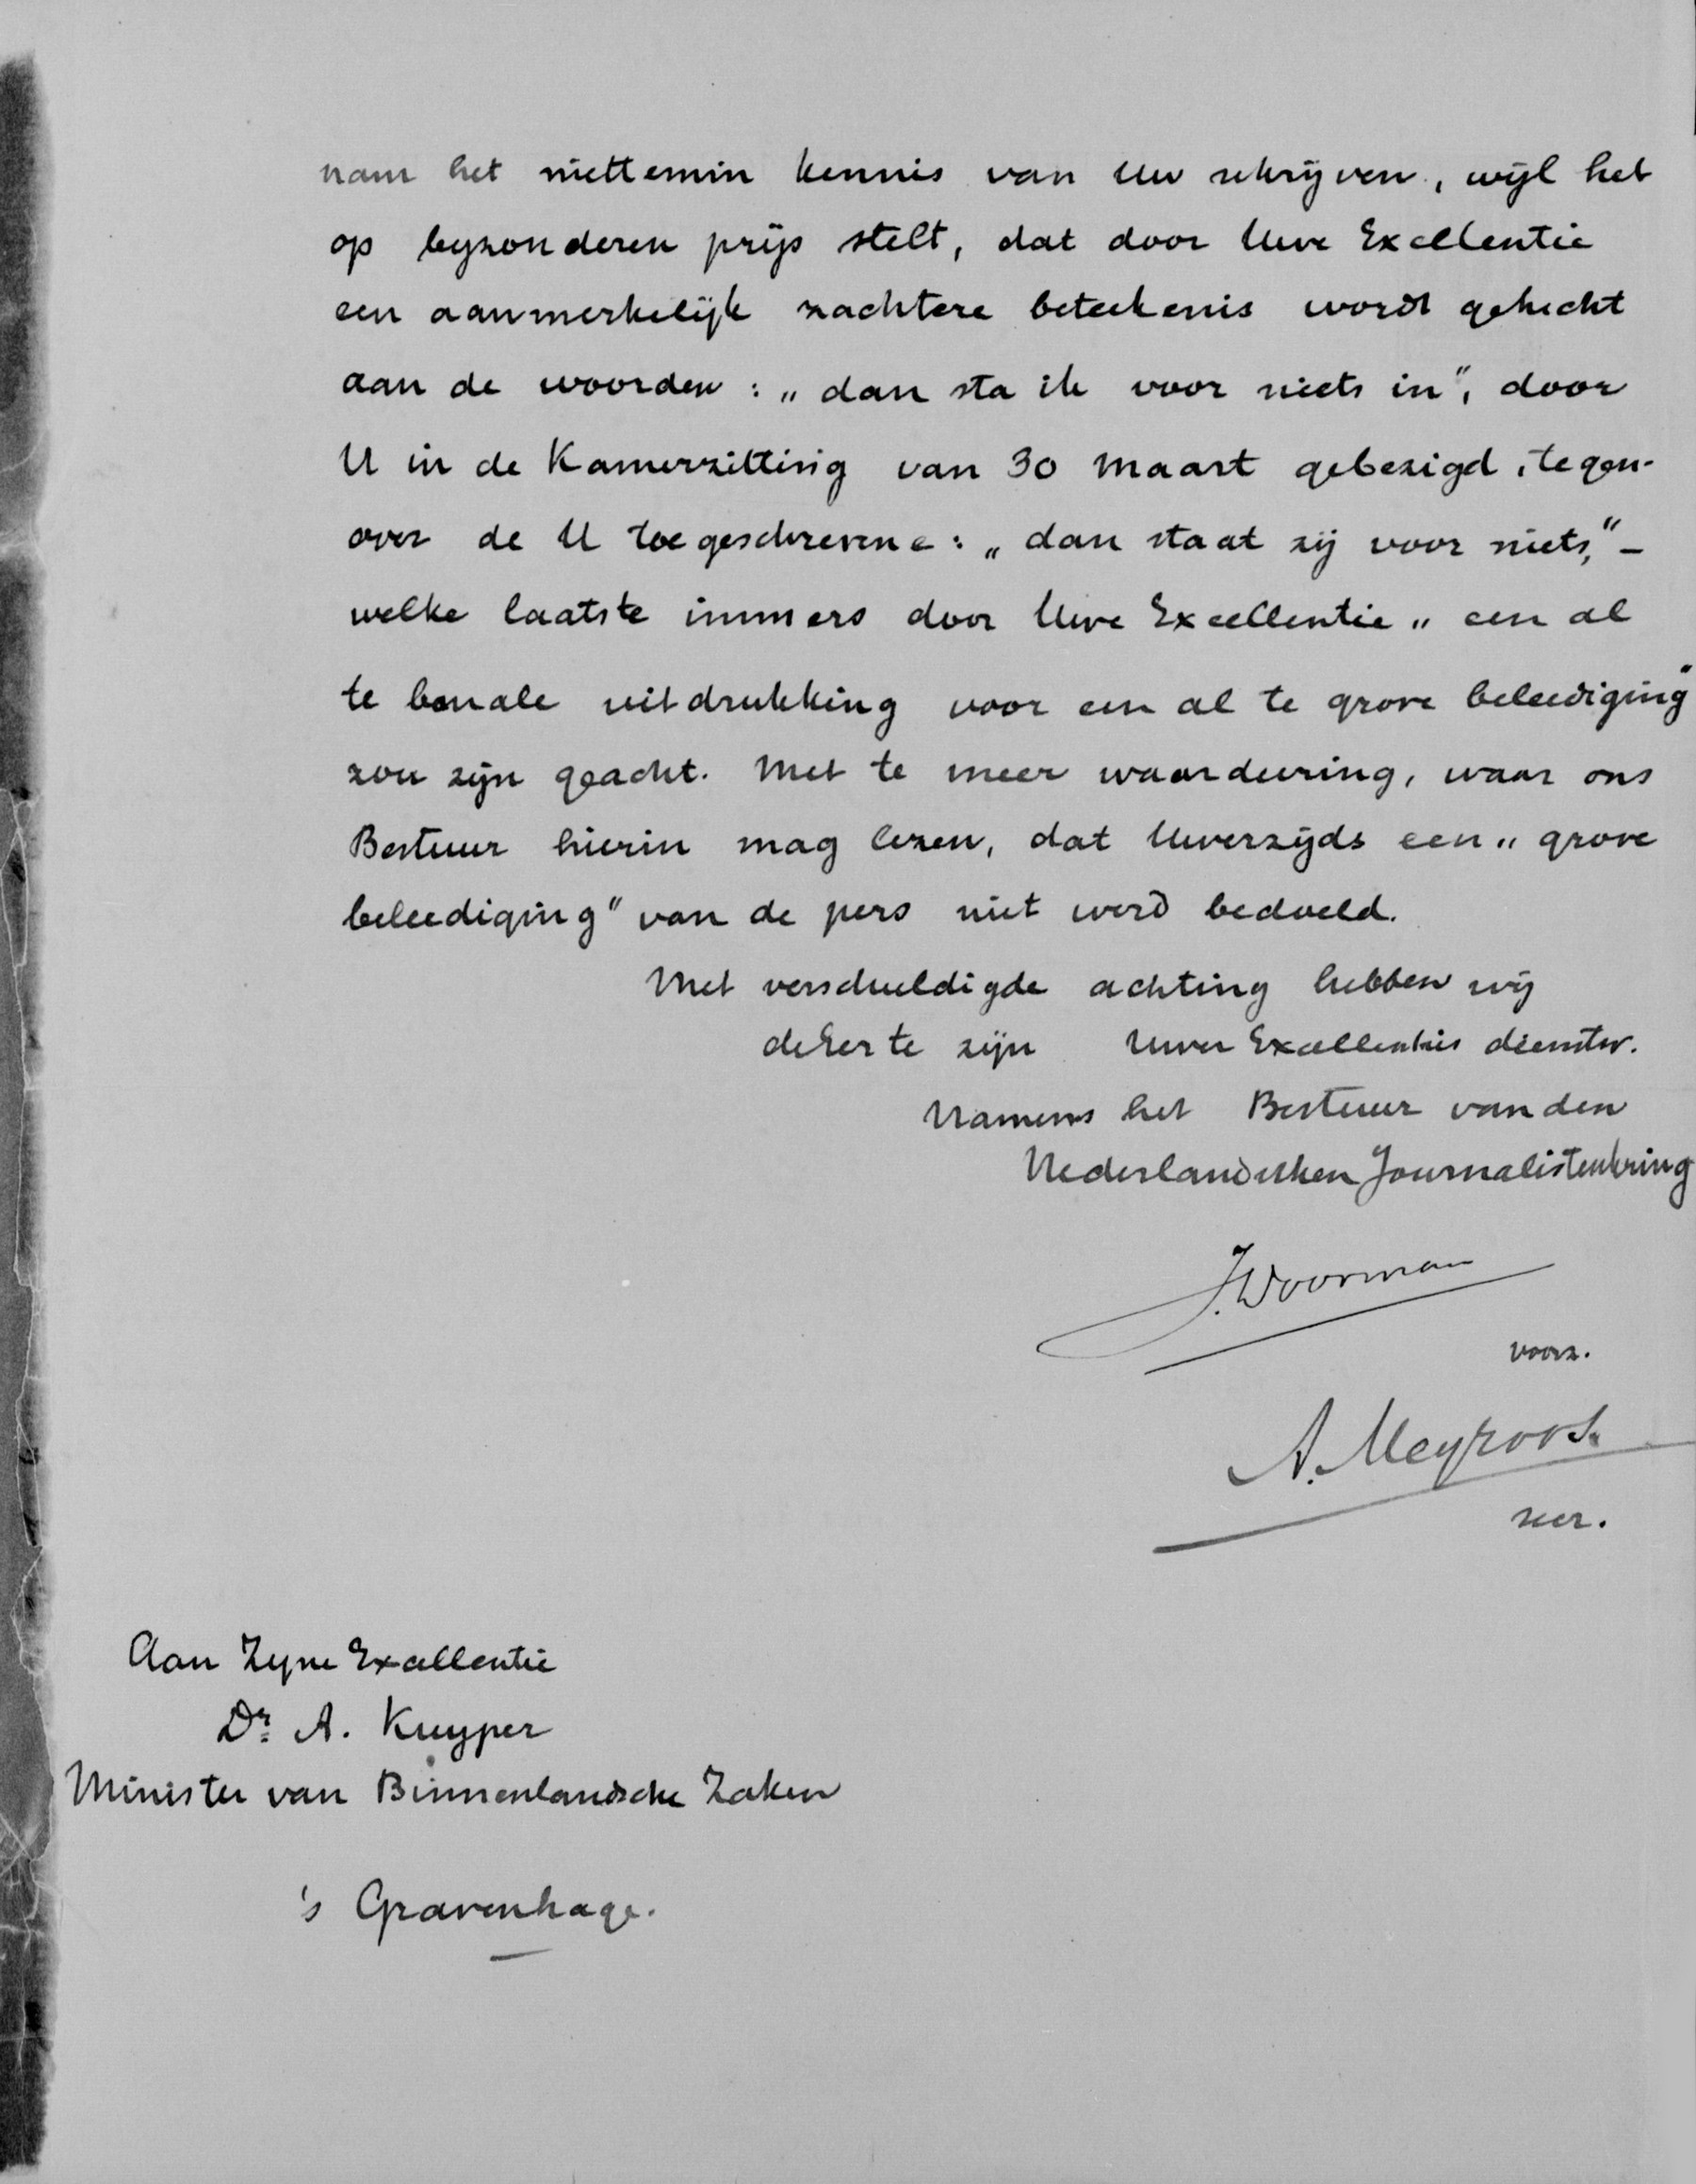 nam het niettemin kennis van Uw schrijven, wijl het
op byzonderen prijs stelt, dat door Uwe Excellentie
een aanmerkelijk zachtere beteekenis wordt gehecht
aan de woorden: „dan sta ik voor niets in", door
U in de Kamerzitting van 30 Maart gebezigd, tegen-
over de U toegeschrevene: „dan staat zij voor niets," –
welke laatste immers door Uwe Excellentie „een al
te banale uitdrukking voor een al te grove beleediging"
zou zijn geacht. Met te meer waardeering, waar ons
Bestuur hierin mag lezen, dat Uwerzijds een „grove
beleediging" van de pers niet werd bedoeld.
Met verschuldigde achting hebben wij
de Eer te zijn Uwer Excellenties dienstw.
Namens het Bestuur van den
Nederlandschen Journalistenkring
J. Voorman
voorz.
A. Meyroos.
secr.
Aan Zyne Excellentie
Dr. A. Kuyper
Minister van Binnenlandsche Zaken
's Gravenhage.